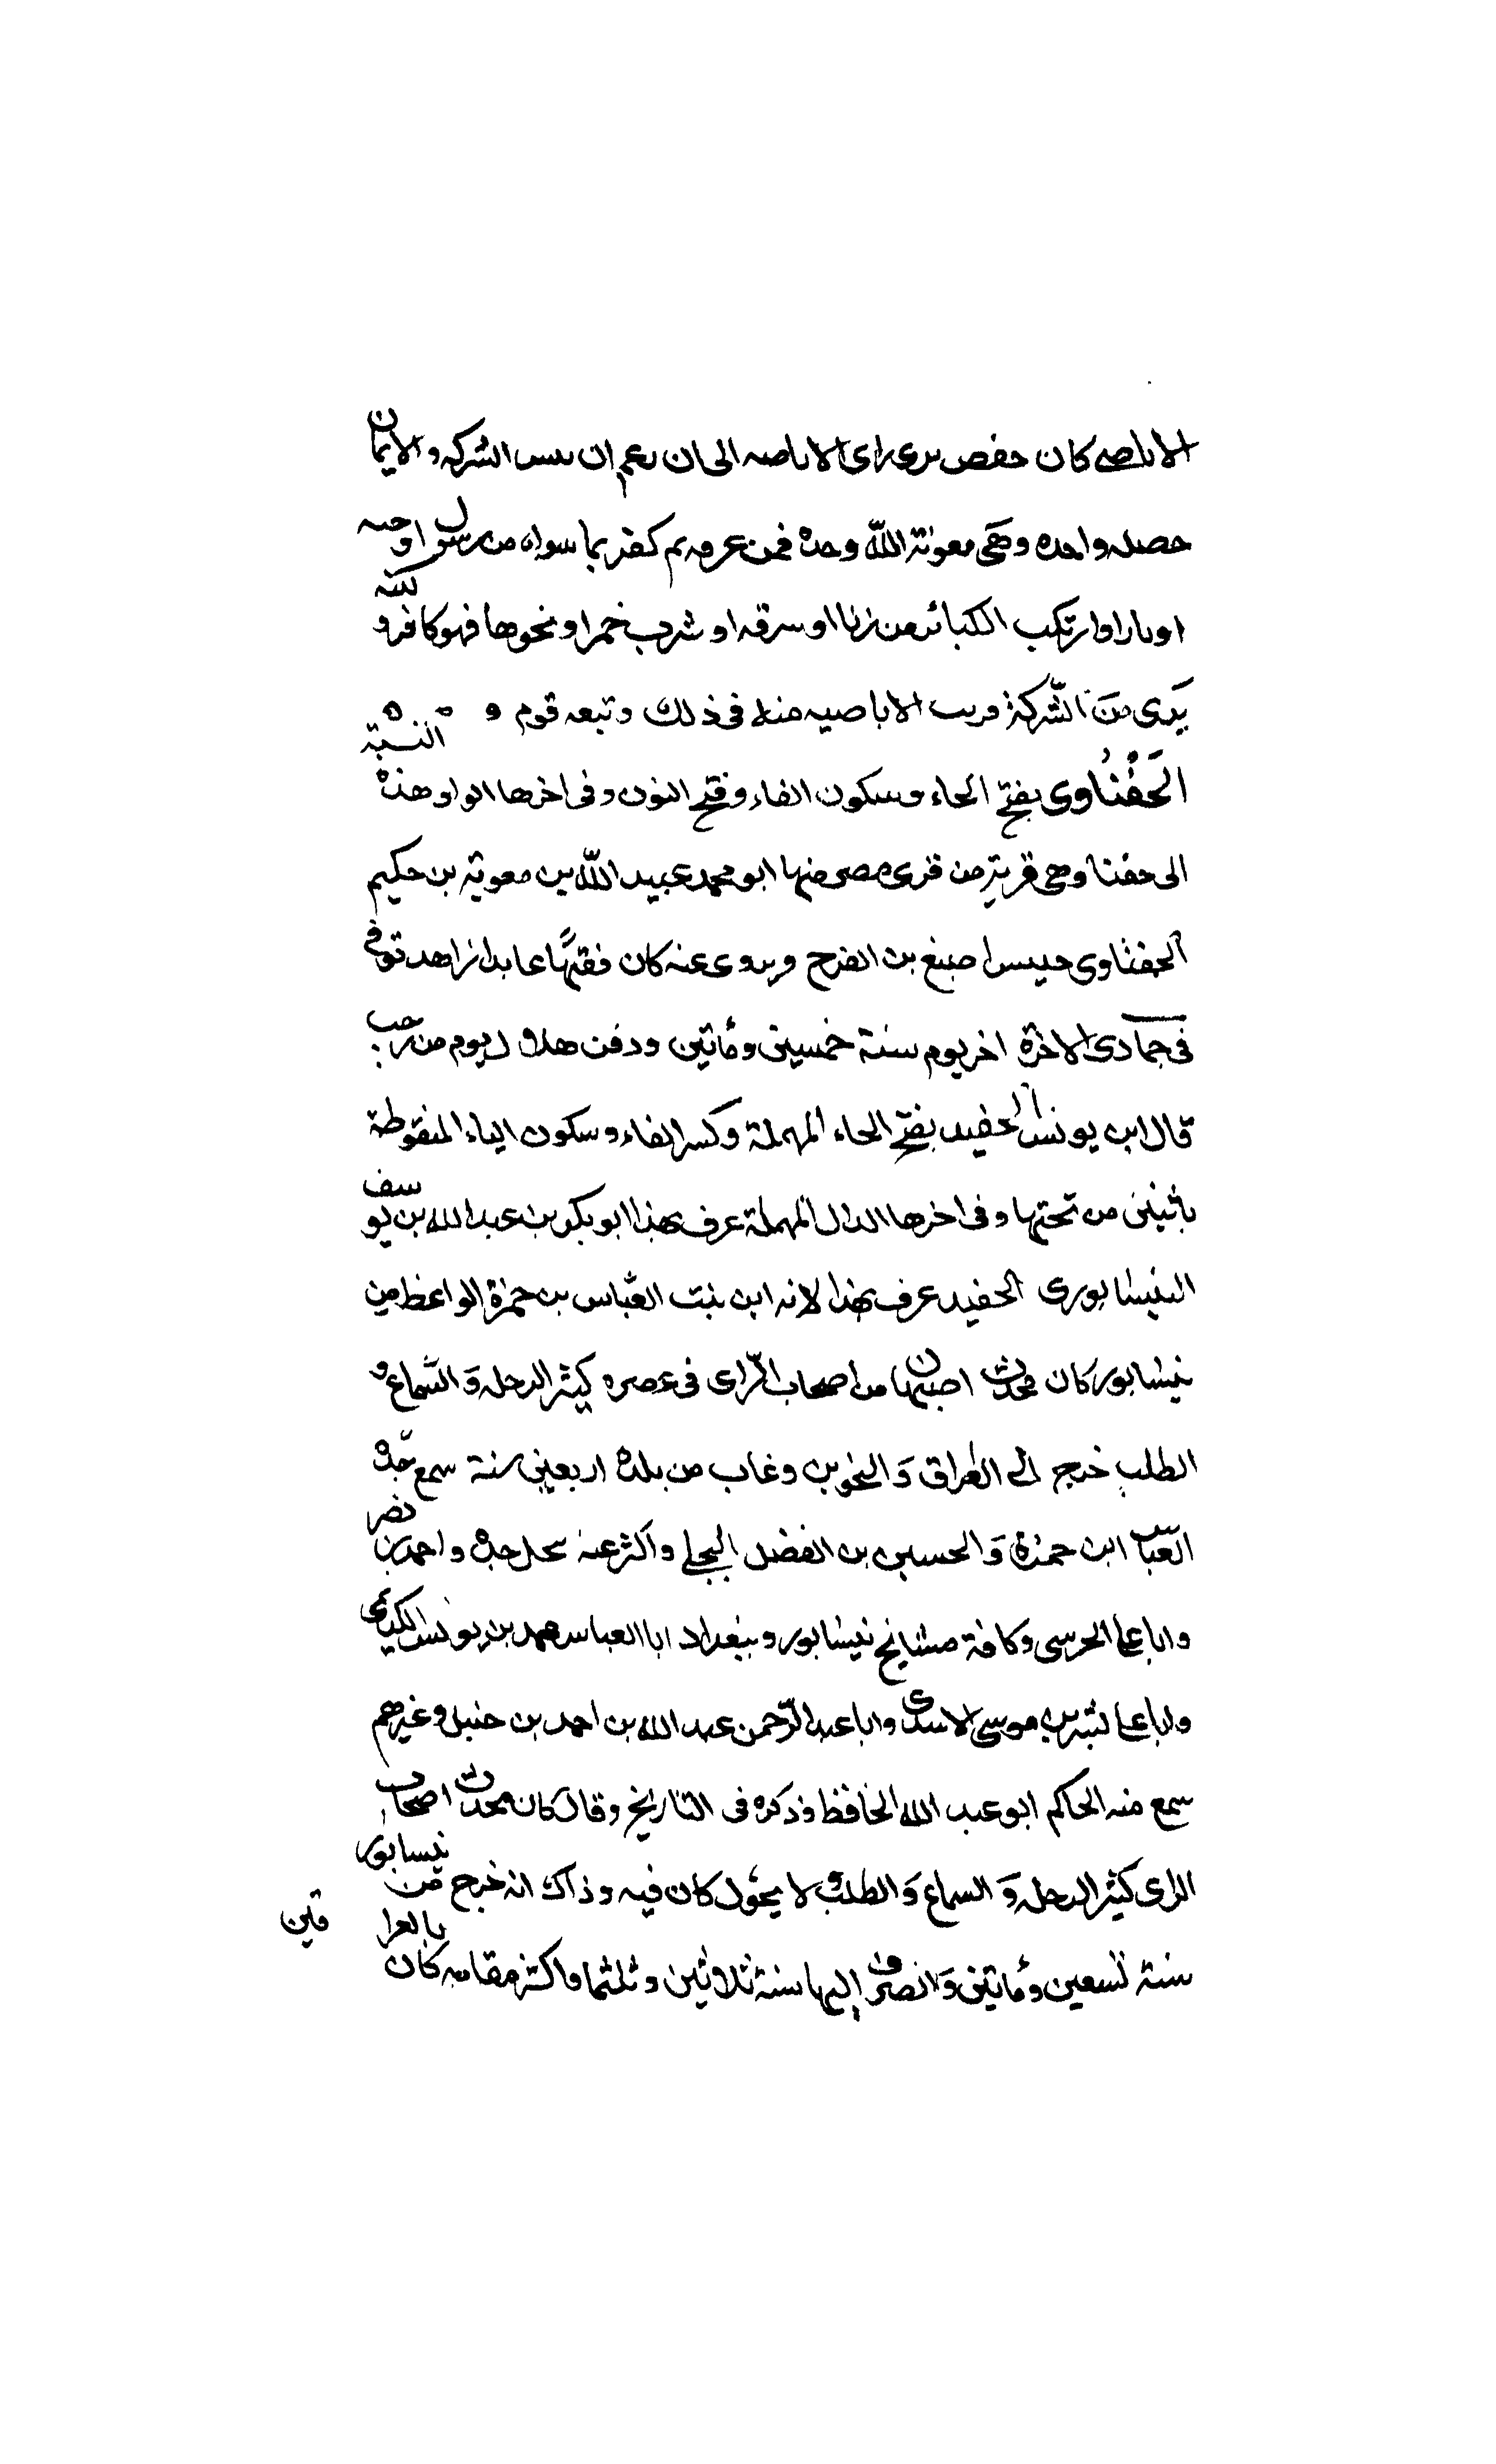 الاباضى كان حفص يرى راى الاباضيه الى ان زعم ان بين الشركه والايمان
خصله واحده وهى معرفة الله وحده فمن عرفه ثم كفر بما سواه من رسول او جنه
او نار او ارتكب الكبائر من زنا او سرقه او شرب خمر او نحوها فهو كافر ولكنه
يرى من الشركة فريت الاباضيه منه فى ذلك وتبعه قوم ه
الحَفْنَاوى بفتح الحاء وسكون الفاء وفتح النون وفى اخرها الواو هذه النسبة
الى حفنا وهى قرية من قرى مصر منها ابو محمد عبيد الله بن معوية بن حكيم
الحفناوى جليس اصبغ بن الفرج ويروى عنه كان فقيهًا عابدا زاهد توفى
فى جمادى الاخرة اخر يوم سنة خمسين ومأتين ودفن يوم من رجب
قال ابن يونس الحفيد بفتح الحاء المهملة وكسر الفاء وسكون الياء المنقوطة
باثنين من تحتها وفى اخرها الدال المهملة عرف بهذا ابو بكر بن عبد الله بن يوسف
النيسابورى الحفيد عرف بهذا لانه ابن بنت العباس بن حمزة الواعظ من
نيشابور كان محدث اصبهان من اصحاب الرّاى فى عصره كثير الرحله وَ السّماع و
الطلب خرج الى العراق وَ البحرين وغاب من بلده اربعين سنة سمع جدّه
العباس ابن حمزة وَالحسين بن الفضل البجلى واكثر عنه جده واحمد بن نصر
وابا على الحرسى وكافة مشايخ نيشابور وببغداد ابا العباس محمد بن يونس الكديمى
وابا على بشر بن موسى الاسدى وابا عبد الرّحمن عبد الله بن احمد بن حنبل وغيرهم
سمع منه الحاكم ابو عبد الله الحافظ وذكره فى التاريخ وقال كان محدث اصحاب
الراى كثير الرحله وَ السماع وَ الطلب ولا يحول كان فيه وذاك انه خرج من نيسابور
سنة تسعين ومأتين وَ انصرف اليها سنة ثلاثين وثلثما واكثر مقامه كان بالعرا
قين